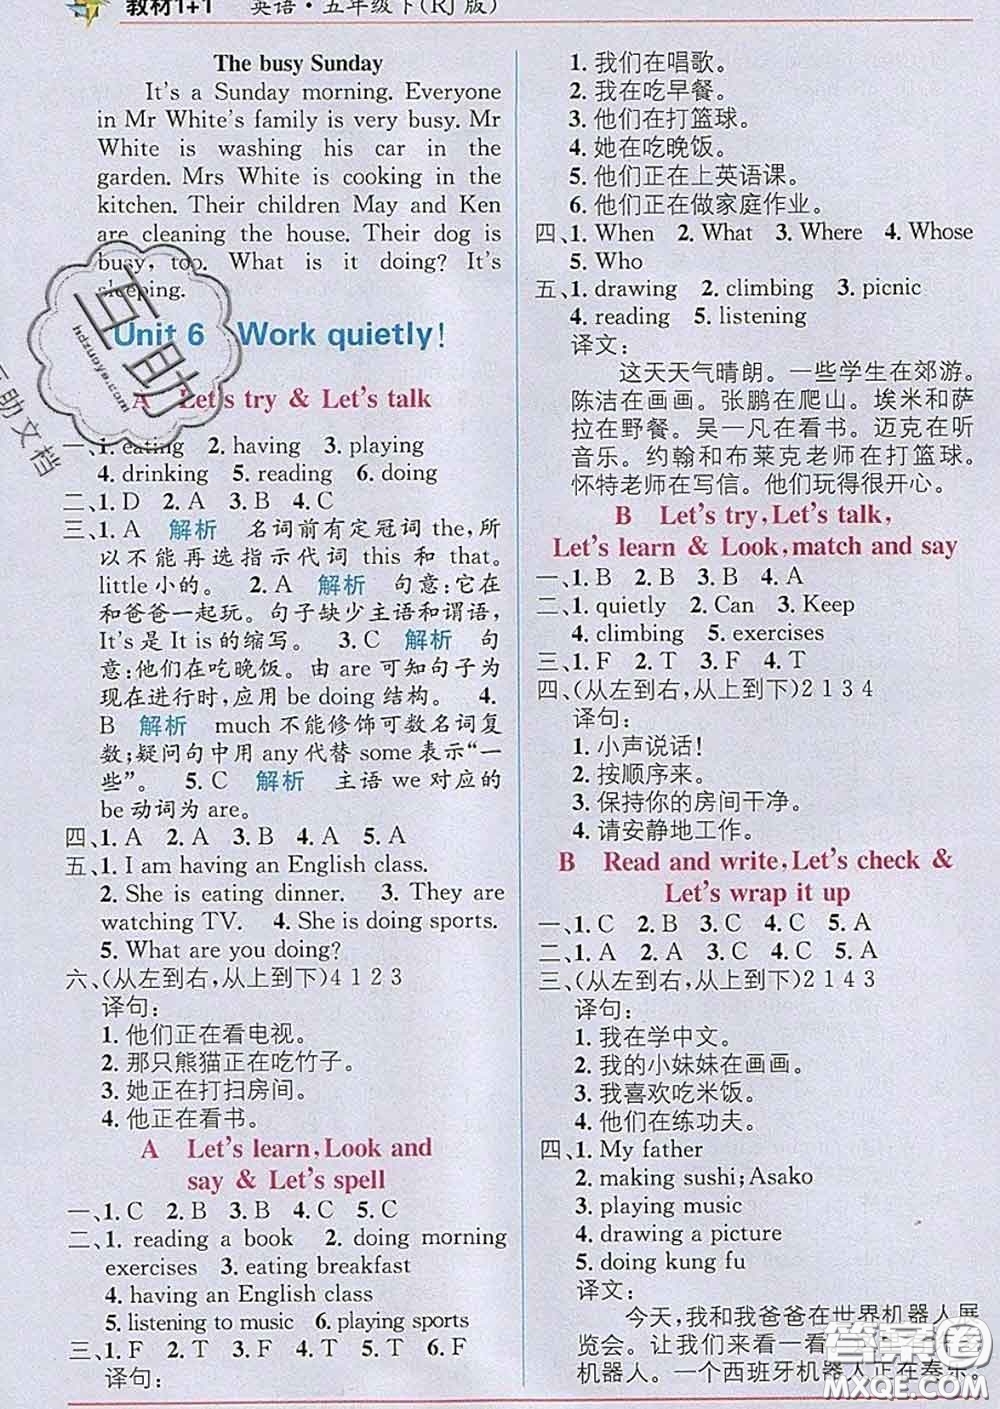 教材1+1 英语·五年级下(RJ版)
The busy Sunday
It's a Sunday morning. Everyone
in Mr White's family is very busy. Mr
White is washing his car in the
garden. Mrs White is cooking in the
kitchen. Their children May and Ken
are cleaning the house. Their dog is
busy, too. What is it doing? It's
sleeping.
Unit 6 Work quietly!
A Let's try & Let's talk
一、1. eating 2. having 3. playing
4. drinking 5. reading 6. doing
二、1. D 2. A 3. B 4. C
三、1. A 解析 名词前有定冠词 the,所
以不能再选指示代词 this 和 that。
little 小的。 2. A 解析 句意:它在
和爸爸一起玩。句子缺少主语和谓语,
It's 是 It is 的缩写。 3. C 解析 句
意:他们在吃晚饭。由 are 可知句子为
现在进行时,应用 be doing 结构。 4.
B 解析 much 不能修饰可数名词复
数;疑问句中用 any 代替 some 表示“一
些”。 5. C 解析 主语 we 对应的
be 动词为 are。
四、1. A 2. A 3. B 4. A 5. A
五、1. I am having an English class.
2. She is eating dinner. 3. They are
watching TV. 4. She is doing sports.
5. What are you doing?
六、(从左到右,从上到下)4 1 2 3
译句:
1. 他们正在看电视。
2. 那只熊猫正在吃竹子。
3. 她正在打扫房间。
4. 他正在看书。
A Let's learn, Look and
say & Let's spell
一、1. C 2. B 3. B 4. C 5. C
二、1. reading a book 2. doing morning
exercises 3. eating breakfast
4. having an English class
5. listening to music 6. playing sports
三、1. F 2. T 3. F 4. T 5. F 6. F
译句:
1. 我们在唱歌。
2. 我在吃早餐。
3. 他们在打篮球。
4. 她在吃晚饭。
5. 他们正在上英语课。
6. 他们正在做家庭作业。
四、1. When 2. What 3. Where 4. Whose
5. Who
五、1. drawing 2. climbing 3. picnic
4. reading 5. listening
译文:
这天天气晴朗。一些学生在郊游。
陈洁在画画。张鹏在爬山。埃米和萨
拉在野餐。吴一凡在看书。迈克在听
音乐。约翰和布莱克老师在打篮球。
怀特老师在写信。他们玩得很开心。
B Let's try, Let's talk,
Let's learn & Look, match and say
一、1. B 2. B 3. B 4. A
二、1. quietly 2. Can 3. Keep
4. climbing 5. exercises
三、1. F 2. T 3. F 4. T
四、(从左到右,从上到下)2 1 3 4
译句:
1. 小声说话!
2. 按顺序来。
3. 保持你的房间干净。
4. 请安静地工作。
B Read and write, Let's check &
Let's wrap it up
一、1. C 2. B 3. C 4. C 5. A
二、1. A 2. A 3. C 4. C 5. A
三、(从左到右,从上到下)2 1 4 3
译句:
1. 我在学中文。
2. 我的小妹妹在画画。
3. 我喜欢吃米饭。
4. 他们在练功夫。
四、1. My father
2. making sushi; Asako
3. playing music
4. drawing a picture
5. doing kung fu
译文:
今天,我和我爸爸在世界机器人展
览会。让我们来看一看
机器人。一个西班牙机器人正在奏乐。
互助
hdzuoye.com
互助文档
答案圈
MXQE.COM